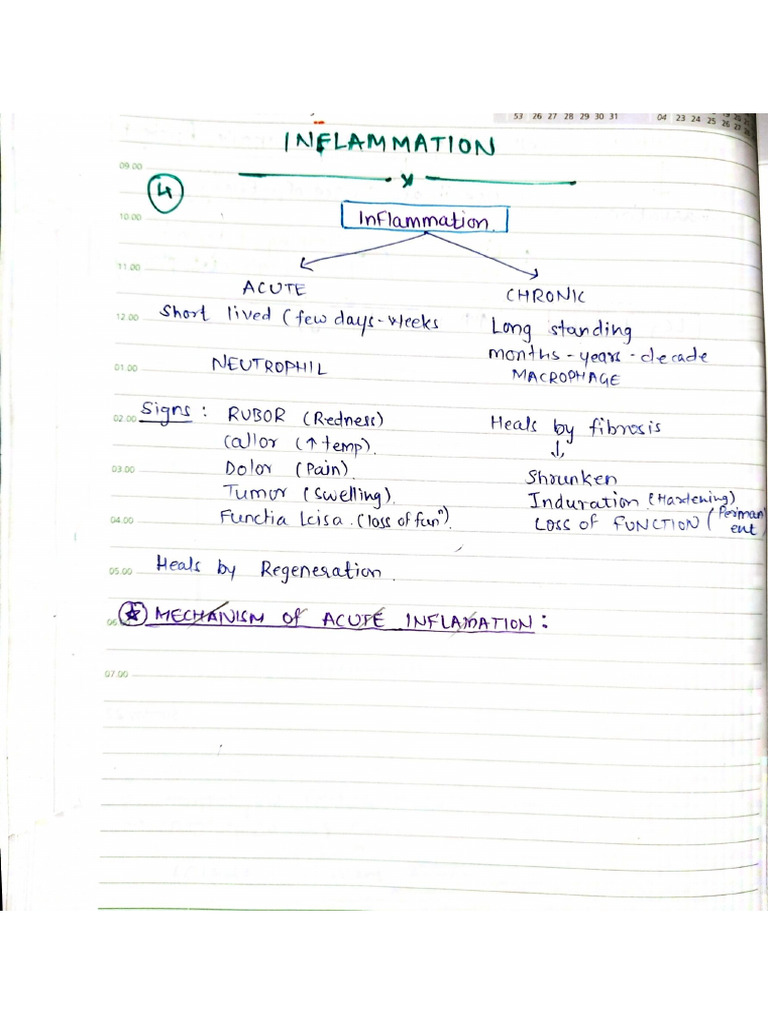 53 26 27 28 29 30 31 04 23 24 25 26 27
INFLAMMATION
09.00
x
4
Inflammation.
10.00
11.00
ACUTE CHRONIC
12.00 Short lived (few days - weeks Long standing
months - years - decade
01.00 NEUTROPHIL MACROPHAGE
02.00 Signs : RUBOR (Redness) Heals by fibrosis
Callor (↑ temp). ↓
03.00 Dolor (Pain). Shrunken
Tumor (Swelling). Induration (Hardening)
04.00 Functia lcisa. (loss of funⁿ). LOSS OF FUNCTION (Perman
ent)
05.00 Heals by Regeneration.
06 ☆ MECHANISM Of ACUTE INFLAMATION :
07.00